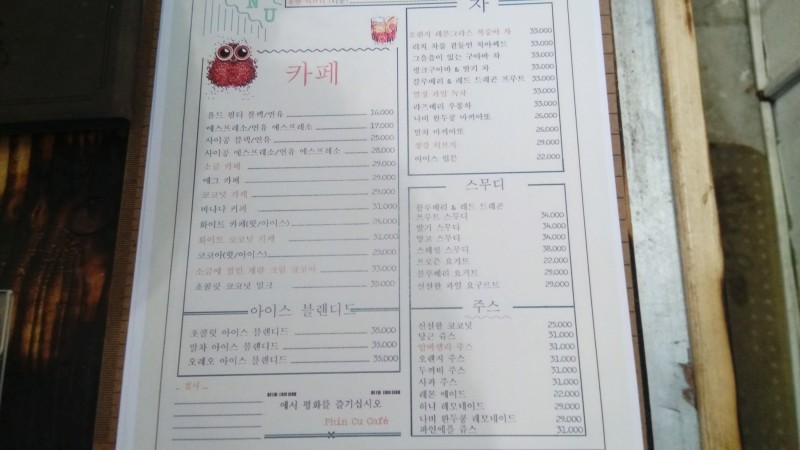 NU
카페
홀드 핀타 블랙/연유 16.000
에스프레소/연유 에스프레소 17.000
사이공 블랙/연유 25.000
사이공 에스프레소/연유 에스프레소 28.000
소금 카페 29.000
에그 카페 29.000
코코넛 카페 29.000
바나나 커피 31.000
화이트 카페(핫/아이스)
화이트 코코넛 카페
코코아(핫/아이스)
소금에 절인 계란 크림 코코아 33.000
초콜릿 코코넛 밀크
아이스 블렌디드
초콜릿 아이스 블렌디드 35.000
말차 아이스 블렌디드 35.000
오레오 아이스 블렌디드 35.000
에서 평화를 즐기십시오
Phin Cu Café
차
오렌지 레몬그라스 복숭아 차 33.000
리치 차를 곁들인 치아씨드 33.000
그을음이 있는 구아바 차 33.000
핑크구아바 & 딸기 차 33.000
블루베리 & 레드 드래곤 프루트 33.000
열정 과일 녹차 33.000
라즈베리 우롱차 33.000
나비 완두콩 마끼아또 26.000
말차 마끼아또 26.000
29.000
아이스 림븐 22.000
스무디
블루베리 & 레드 드래곤
프루트 스무디 34.000
딸기 스무디 34.000
망고 스무디 34.000
스페셜 스무디 38.000
프로즌 요거트 22.000
블루베리 요거트 29.000
신선한 과일 요구르트 29.000
주스
신선한 코코넛 25.000
당근 쥬스 31.000
암바렐라 주스 31.000
오렌지 주스 31.000
두꺼비 주스 31.000
사과 주스 31.000
레몬 에이드 22.000
허니 레모네이드 29.000
나비 완두콩 레모네이드 29.000
파인애플 쥬스 31.000